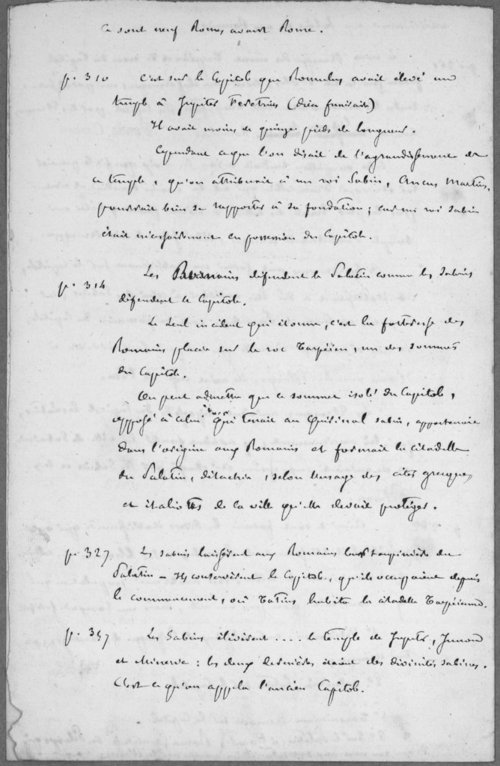 Ce sont neuf Romes avant Rome.
p. 310 C'est sur le Capitole que Romulus avait élevé un
temple à Jupiter Férétrius (dieu funeste)
Il avait moins de quinze pieds de longueur.
Cependant ce que l'on disait de l'agrandissement de
ce temple, qu'on attribuait à un roi Sabin, Ancus Martius,
pourrait bien se rapporter à sa fondation ; car un roi sabin
était nécessairement en possession du Capitole.
p. 314 Les Romains défendent le Palatin comme les Sabins
défendent le Capitole.
Le seul incident qui étonne, c'est la forteresse des
Romains placée sur le roc Tarpéien, un des sommets
du Capitole.
On peut admettre que ce sommet isolé du Capitole,
opposé à celui qui tenait au Quirinal sabin, appartenait
dans l'origine aux Romains et formait la citadelle
du Palatin, détachée, selon l'usage des cités grecques
et italiotes de la ville qu'elle devait protéger.
p. 327 Les Sabins laissèrent aux Romains du
Palatin – Ils conservèrent le Capitole, qu'ils occupaient depuis
le commencement, où Tatius habita la citadelle Tarpéienne.
p. 347 Les Sabins élevèrent .... le temple de Jupiter, Junon
et Minerve : les deux dernières étaient des divinités sabines.
C'est ce qu'on appela l'ancien Capitole.